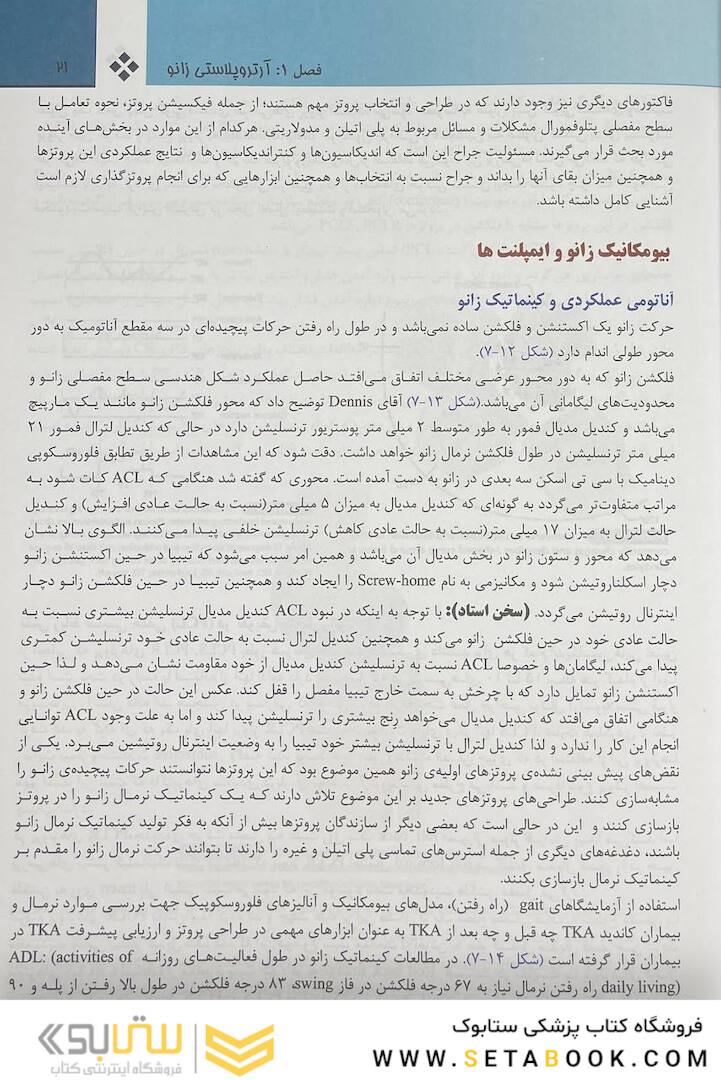 فصل ۱: آرتروپلاستی زانو
۲۱
فاکتورهای دیگری نیز وجود دارند که در طراحی و انتخاب پروتز مهم هستند؛ از جمله فیکسیشن پروتز، نحوه تعامل با
سطح مفصلی پتلوفمورال مشکلات و مسائل مربوط به پلی اتیلن و مدولاریتی. هرکدام از این موارد در بخش‌های آینده
مورد بحث قرار می‌گیرند. مسئولیت جراح این است که اندیکاسیون‌ها و کنتراندیکاسیون‌ها و نتایج عملکردی این پروتزها
و همچنین میزان بقای آنها را بداند و جراح نسبت به انتخاب‌ها و همچنین ابزارهایی که برای انجام پروتزگذاری لازم است
آشنایی کامل داشته باشد.
بیومکانیک زانو و ایمپلنت ها
آناتومی عملکردی و کینماتیک زانو
حرکت زانو یک اکستنشن و فلکشن ساده نمی‌باشد و در طول راه رفتن حرکات پیچیده‌ای در سه مقطع آناتومیک به دور
محور طولی اندام دارد (شکل ۱۲-۷).
فلکشن زانو که به دور محور عرضی مختلف اتفاق می‌افتد حاصل عملکرد شکل هندسی سطح مفصلی زانو و
محدودیت‌های لیگامانی آن می‌باشد.(شکل ۱۳-۷) آقای Dennis توضیح داد که محور فلکشن زانو مانند یک مارپیچ
می‌باشد و کندیل مدیال فمور به طور متوسط ۲ میلی متر پوستریور ترنسلیشن دارد در حالی که کندیل لترال فمور ۲۱
میلی متر ترنسلیشن در طول فلکشن نرمال زانو خواهد داشت. دقت شود که این مشاهدات از طریق تطابق فلوروسکوپی
دینامیک با سی تی اسکن سه بعدی در زانو به دست آمده است. محوری که گفته شد هنگامی که ACL کات شود به
مراتب متفاوت‌تر می‌گردد به گونه‌ای که کندیل مدیال به میزان ۵ میلی متر(نسبت به حالت عادی افزایش) و کندیل
حالت لترال به میزان ۱۷ میلی متر(نسبت به حالت عادی کاهش) ترنسلیشن خلفی پیدا می‌کنند. الگوی بالا نشان
می‌دهد که محور و ستون زانو در بخش مدیال آن می‌باشد و همین امر سبب می‌شود که تیبیا در حین اکستنشن زانو
دچار اسکلناروتیشن شود و مکانیزمی به نام Screw-home را ایجاد کند و همچنین تیبیا در حین فلکشن زانو دچار
اینترنال روتیشن می‌گردد. (سخن استاد): با توجه به اینکه در نبود ACL کندیل مدیال ترنسلیشن بیشتری نسبت به
حالت عادی خود در حین فلکشن زانو می‌کند و همچنین کندیل لترال نسبت به حالت عادی خود ترنسلیشن کمتری
پیدا می‌کند، لیگامان‌ها و خصوصا ACL نسبت به ترنسلیشن کندیل مدیال از خود مقاومت نشان می‌دهد و لذا حین
اکستنشن زانو تمایل دارد که با چرخش به سمت خارج تیبیا مفصل را قفل کند. عکس این حالت در حین فلکشن زانو و
هنگامی اتفاق می‌افتد که کندیل مدیال می‌خواهد رنج بیشتری را ترنسلیشن پیدا کند و اما به علت وجود ACL توانایی
انجام این کار را ندارد و لذا کندیل لترال با ترنسلیشن بیشتر خود تیبیا را به وضعیت اینترنال روتیشین می‌برد. یکی از
نقض‌های پیش بینی نشده‌ی پروتزهای اولیه‌ی زانو همین موضوع بود که این پروتزها نتوانستند حرکات پیچیده‌ی زانو را
مشابه‌سازی کنند. طراحی‌های پروتزهای جدید بر این موضوع تلاش دارند که یک کینماتیک نرمال زانو را در پروتز
بازسازی کنند و این در حالی است که بعضی دیگر از سازندگان پروتزها بیش از آنکه به فکر تولید کینماتیک نرمال زانو
باشند، دغدغه‌های دیگری از جمله استرس‌های تماسی پلی اتیلن و غیره را دارند تا بتوانند حرکت نرمال زانو را مقدم بر
کینماتیک نرمال بازسازی بکنند.
استفاده از آزمایشگاهای gait (راه رفتن)، مدل‌های بیومکانیک و آنالیزهای فلوروسکوپیک جهت بررسی موارد نرمال و
بیماران کاندید TKA چه قبل و چه بعد از TKA به عنوان ابزارهای مهمی در طراحی پروتز و ارزیابی پیشرفت TKA در
بیماران قرار گرفته است (شکل ۱۴-۷). در مطالعات کینماتیک زانو در طول فعالیت‌های روزانه ADL: (activities of
daily living) راه رفتن نرمال نیاز به ۶۷ درجه فلکشن در فاز swing، ۸۳ درجه فلکشن در طول بالا رفتن از پله و ۹۰
فروشگاه کتاب پزشکی ستابوک
WWW.SETABOOK.COM
ستابوک
فروشگاه اینترنتی کتاب